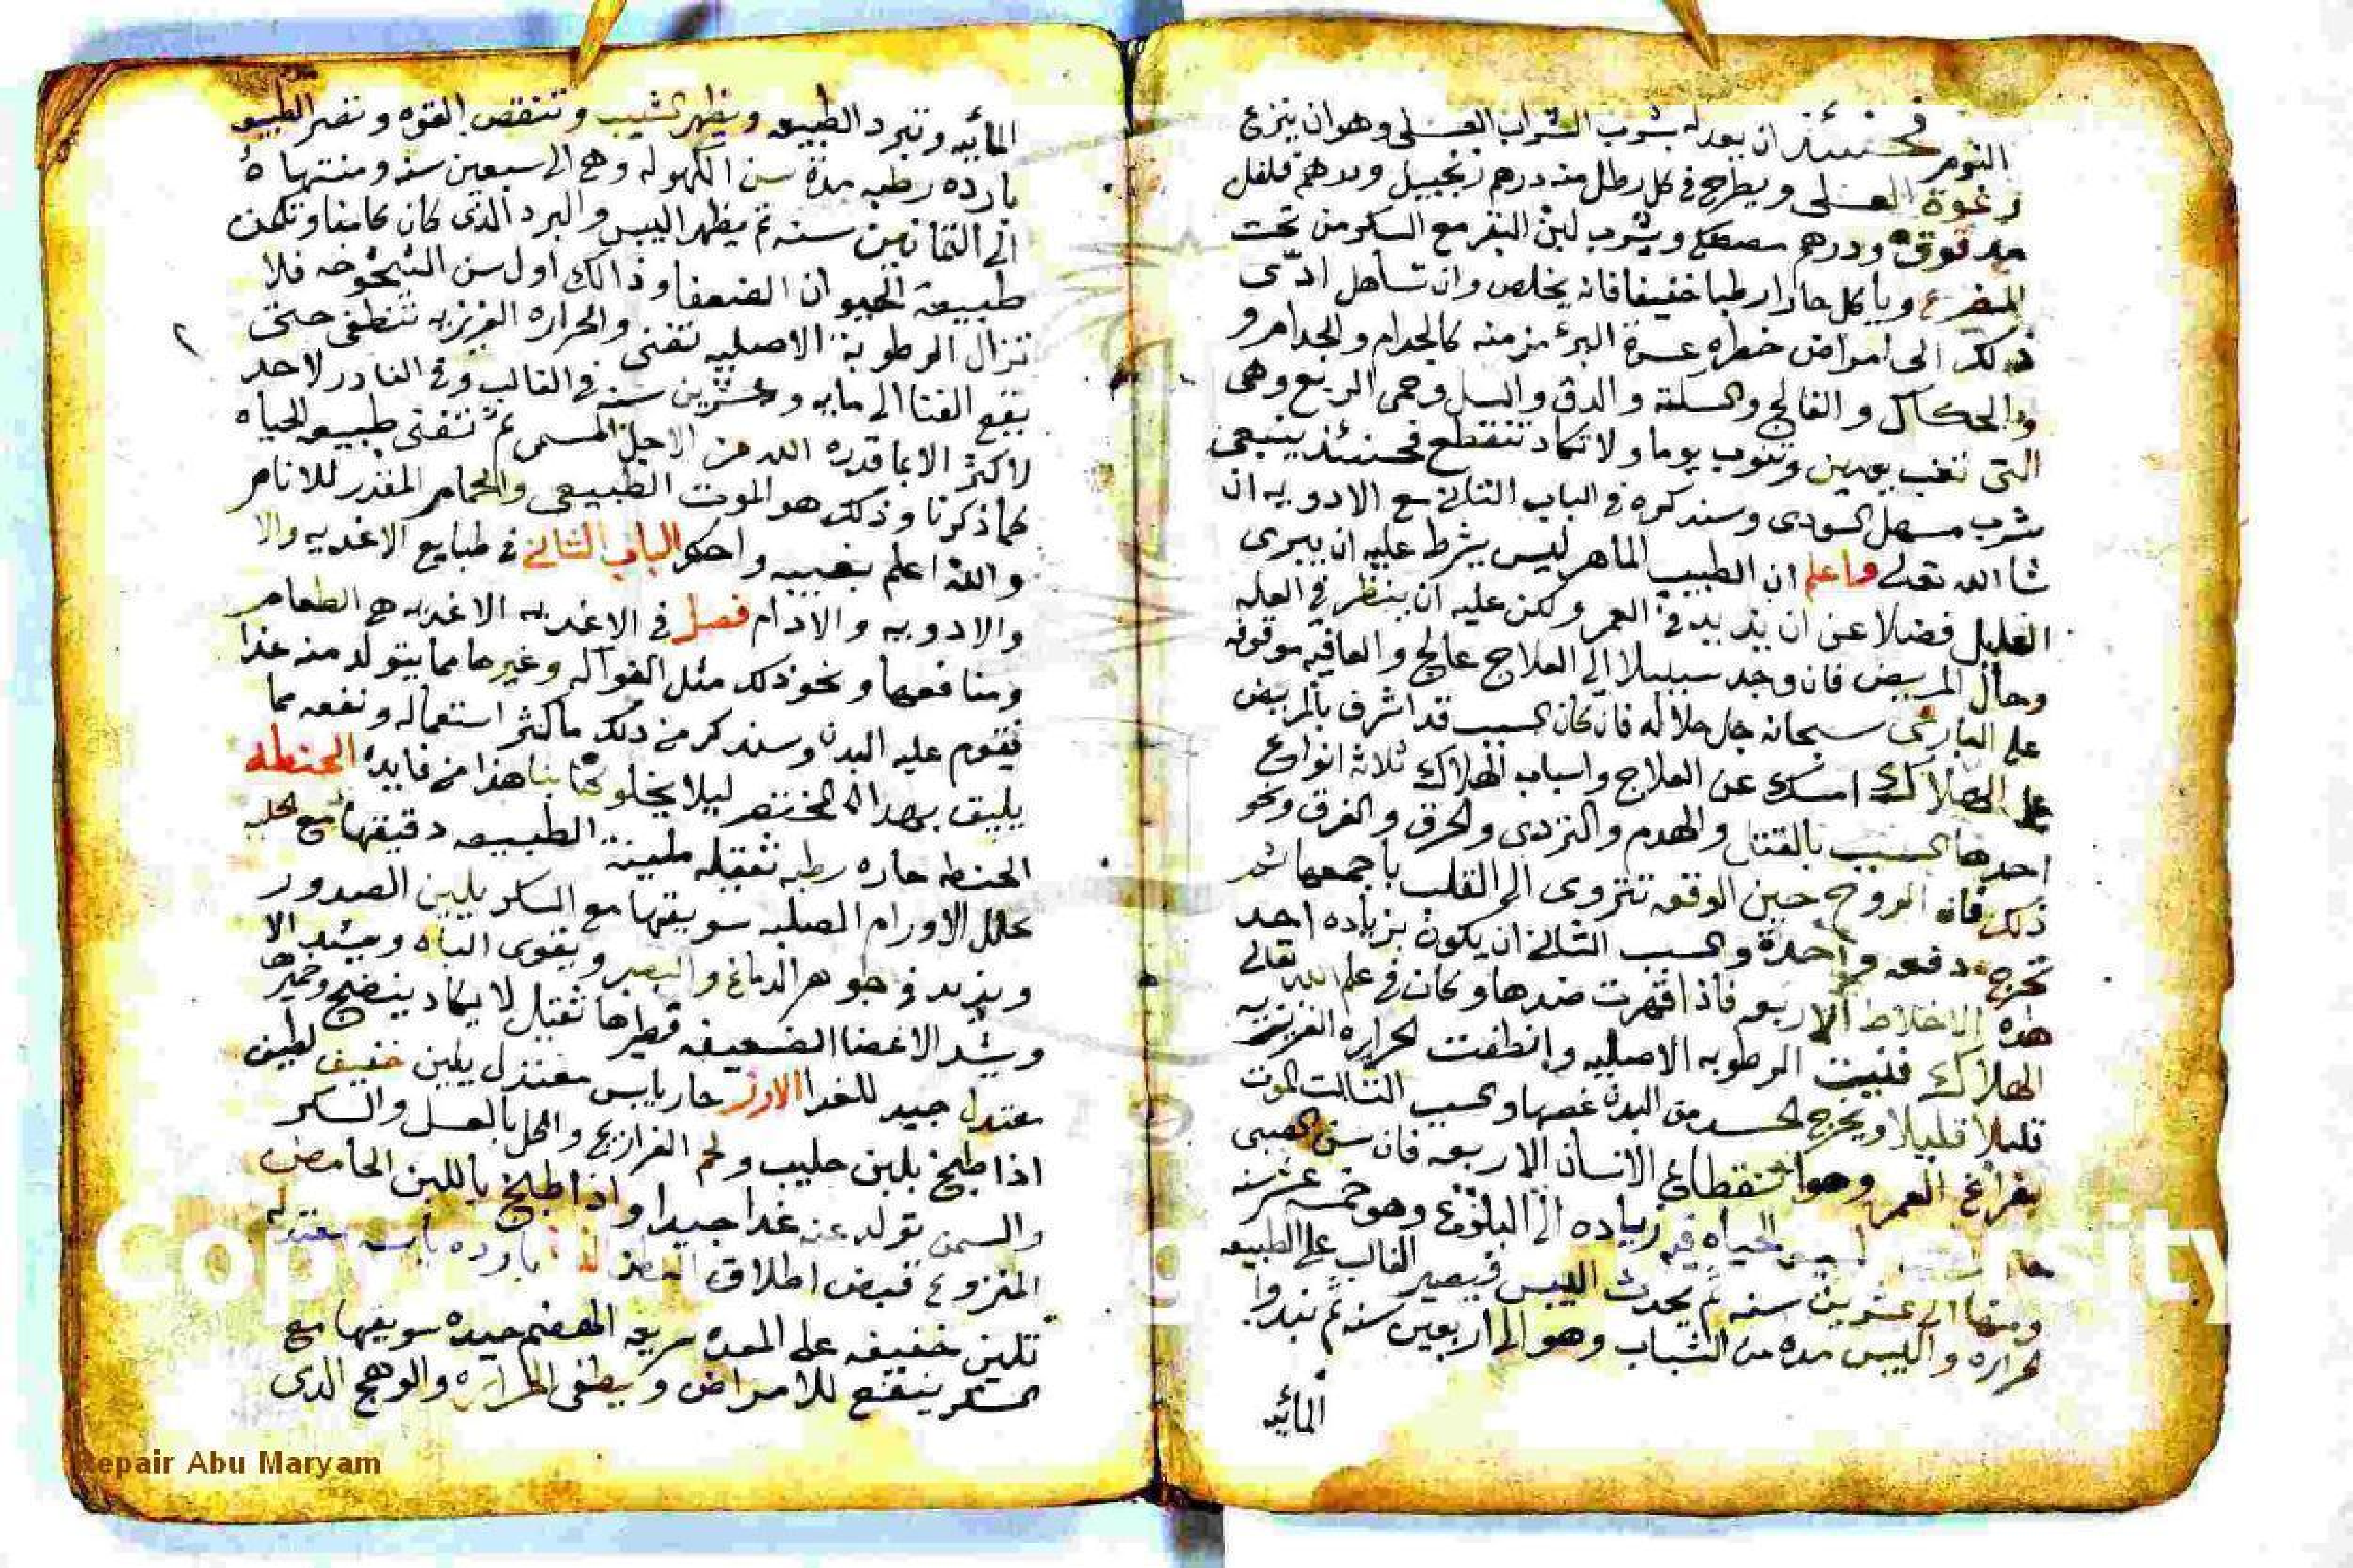 النوم فحينئذ ان يعد له بشرب الشراب العسلى وهو ان ينزع
رغوة العسلى ويطرح فى كل رطل منه درهم زنجبيل ودرهم فلفل
مدقوق ودرهم مصطكى ويشرب لبن البقر مع السكر من تحت
الضرع وياكل حارا رطبا خفيفا فانه يخلص وان تساهل ادى
ذلك الى امراض خطره عسرة البرئ مزمنه كالجدام والجدام و
والحكاك والفالج والسلة والدق والسل وحمى الربع وهى
التى تغب يومين وتنوب يوما ولا تكاد تنقطع فحينئذ ينبغى
شرب مسهل السودى وسنذكره فى الباب الثانى مع الادويه ان
شا الله تعالى واعلم ان الطبيب الماهر ليس يشرط عليه ان يبرى
العليل فضلا عن ان يزيد فى العمر ولكن عليه ان ينظر فى العله
وحال المريض فان وجد سبيلا الى العلاج عالج والعافيه موقوفه
على البارئ سبحانه جل جلاله فان كان السبب قد اشرف بالمريض
على الهلاك امسك عن العلاج واسباب الهلاك ثلاثة انواع
احدها السبب بالقتل والهدم والتردى والحرق والغرق ونحو
ذلك فان الروح حين الوقعه تنزوى الى القلب باجمعها ثم
تخرج دفعه واحدة والسبب الثانى ان يكون بزياده احد
هذه الاخلاط الاربعه فاذا قهرت ضدها وكان فى علم الله تعالى
الهلاك فنيت الرطوبه الاصليه وانطفت الحراره الغريزيه
قليلا قليلا ويخرج الجسد من البدن غصبا والسبب الثالث الموت
بفراغ العمر وهو انقطاع الانسان الاربعه فان سن الصبى
الحياه فى زياده الى البلوغ وهو خمسه عشر سنه
ومنها الى عشرين سنه ثم يحدث اليبس فيصير الغالب على الطبيعه
الحراره واليبس مده من الشباب وهو الى اربعين سنه ثم تبدوا
المائيه
المائيه وتبرد الطبيعه ويظهر الشيب وتنقص القوه وتصير الطبيعه
بارده رطبه مدة سن الكهوله وهى الى سبعين سنه ومنتهاه
الى الثمانين سنه ثم يظهر اليبس والبرد الذى كان كامنا وتكمن
طبيعة الحيوان الضعفا وذالك اول سن الشيخوخه فلا
تزال الرطوبة الاصليه تفنى والحراره الغريزيه تنطفى حتى
يقع الفنا الى مايه وعشرين سنه فى الغالب وفى النادر لاحد
لاكثر الا بما قدره الله من الاجل المسمى ثم تفنى طبيعه الحياه
كما ذكرنا وذلك هو الموت الطبيعى والحمام المقدر للانام
والله اعلم بغيبه واحكم الباب الثانى فى طبايع الاغذيه والا
والادويه والادام فصل فى الاغذيه الاغذيه هى الطعام
ومنافعها ونحو ذلك مثل الفواكه وغيرها مما يتولد منه غذا
فيقوم عليه البدن وسنذكر من ذلك ماكثر استعماله ونفعه مما
يليق بهذا المختصر ليلا يخلو كتابنا هذا من فايدة الحنطه
الحنطه حاره رطبه ثقيله ملينة الطبيعه دقيقها مع الحلبه
يحلل الاورام الصلبه سويقها مع السكر يلين الصدور
ويزيد فى جوهر الدماغ والبصر ويقوى الباه ويشد الا
ويشد الاعضا الضعيفه فطيرها ثقيل لا يكاد ينضج وخميرها
معتدل جيد للغذا الارز حار يابس معتدل يلين خفيف لطيف
اذا طبخ بلبن حليب ولحم الفراريج والخل بالعسل والسكر
والسمن تولد عنه غذا جيدا واذا طبخ باللبن الحامض
المنزوع قبض اطلاق البطن بارده يابسه معتدله
تلين خفيفه على المعده سريعه الهضم جيده سويقها مع
السكر ينفع للامراض ويطفى الحراره والوهج الذى
Repair Abu Maryam